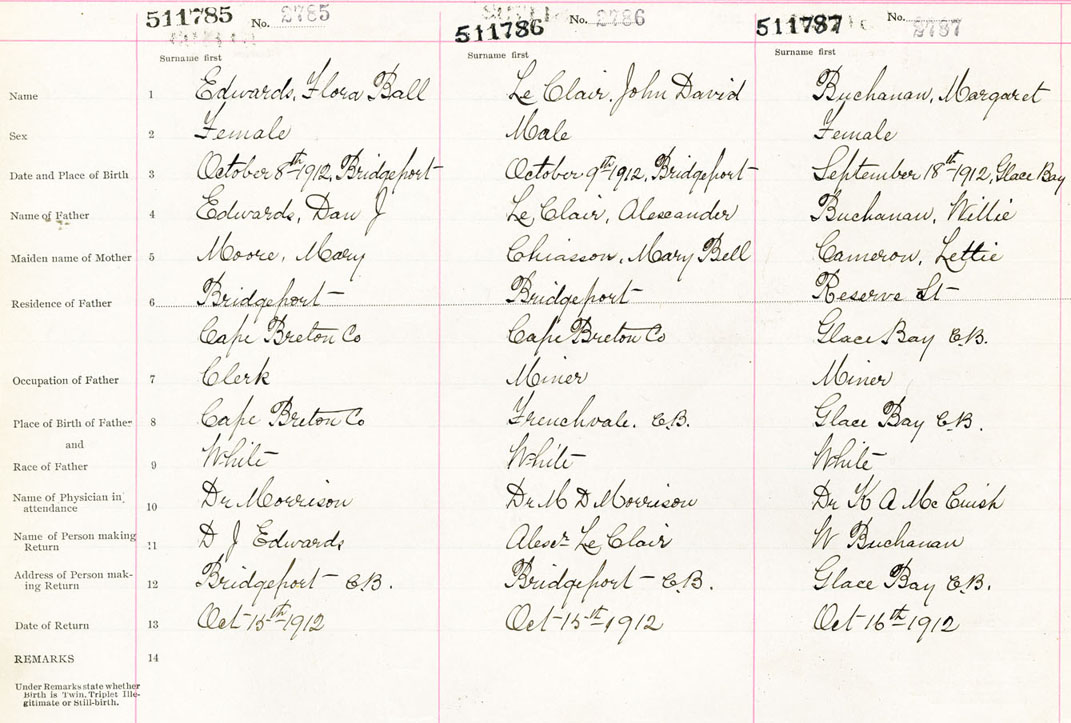 511785 No. 2785
511786 No. 2786
511787 No. 2787
Surname first Surname first Surname first
Name 1 Edwards, Flora Ball Le Clair, John David Buchanan, Margaret
Sex 2 Female Male Female
Date and Place of Birth 3 October 8th 1912, Bridgeport October 9th 1912, Bridgeport September 18th 1912, Glace Bay
Name of Father 4 Edwards, Dan J Le Clair, Alexander Buchanan, Willie
Maiden name of Mother 5 Moore, Mary Chiasson, Mary Bell Cameron, Lettie
Residence of Father 6 Bridgeport Bridgeport Reserve St
Cape Breton Co Cape Breton Co Glace Bay C.B.
Occupation of Father 7 Clerk Miner Miner
Place of Birth of Father 8 Cape Breton Co Frenchvale. C.B. Glace Bay C.B.
and
Race of Father 9 White White White
Name of Physician in
attendance 10 Dr Morrison Dr M D Morrison Dr K A McCuish
Name of Person making
Return 11 D J Edwards Alexr Le Clair W Buchanan
Address of Person mak-
ing Return 12 Bridgeport C.B. Bridgeport C.B. Glace Bay C.B.
Date of Return 13 Oct 15th 1912 Oct 15th 1912 Oct 16th 1912
REMARKS 14
Under Remarks state whether
Birth is Twin, Triplet Ille-
gitimate or Still-birth.